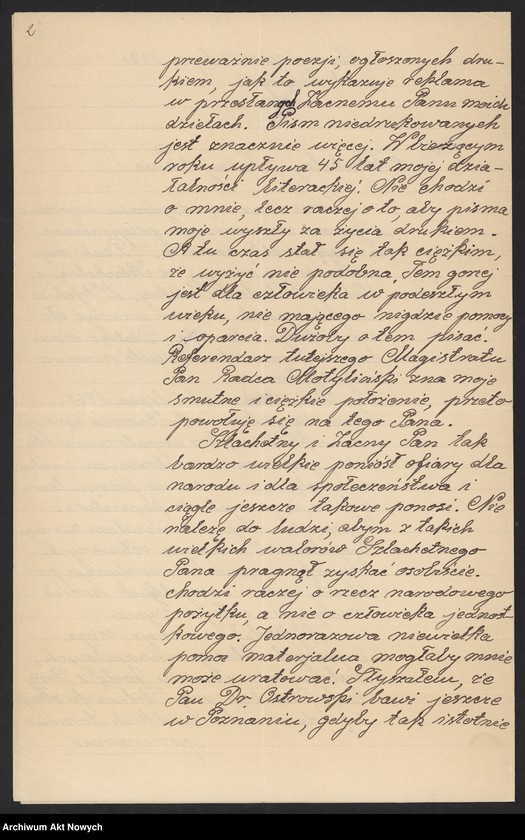 2
przeważnie poezji, ogłoszonych dru-
kiem, jak to wykazuje reklama
w przesłanych Zacnemu Panu moich
dziełach. Pism niedrukowanych
jest znacznie więcej. W bieżącym
roku upływa 45 lat mojej dzia-
łalności literackiej. Nie chodzi
o mnie, lecz raczej o to, aby pisma
moje wyszły za życia drukiem.
A tu czas stał się tak ciężkim,
że wyżyć nie podobna. Tem gorzej
jest dla człowieka w podeszłym
wieku, nie mającego nigdzie pomocy
i oparcia. Dużoby o tem pisać.
Referendarz tutejszego Magistratu
Pan Radca Motyliński zna moje
smutne i ciężkie położenie, przeto
powołuję się na tego Pana.
Szlachetny i Zacny Pan tak
bardzo wielkie poniósł ofiary dla
narodu i dla społeczeństwa i
ciągle jeszcze takowe ponosi. Nie
należę do ludzi, abym z takich
wielkich walorów Szlachetnego
Pana pragnął zyskać osobiście.
chodzi raczej o rzecz narodowego
pożytku, a nie o człowieka jednost-
kowego. Jednorazowa niewielka
pomoc materjalna mogłaby mnie
może uratować. Słyszałem, że
Pan Dr. Ostrowski bawi jeszcze
w Poznaniu, gdyby tak istotnie
Archiwum Akt Nowych